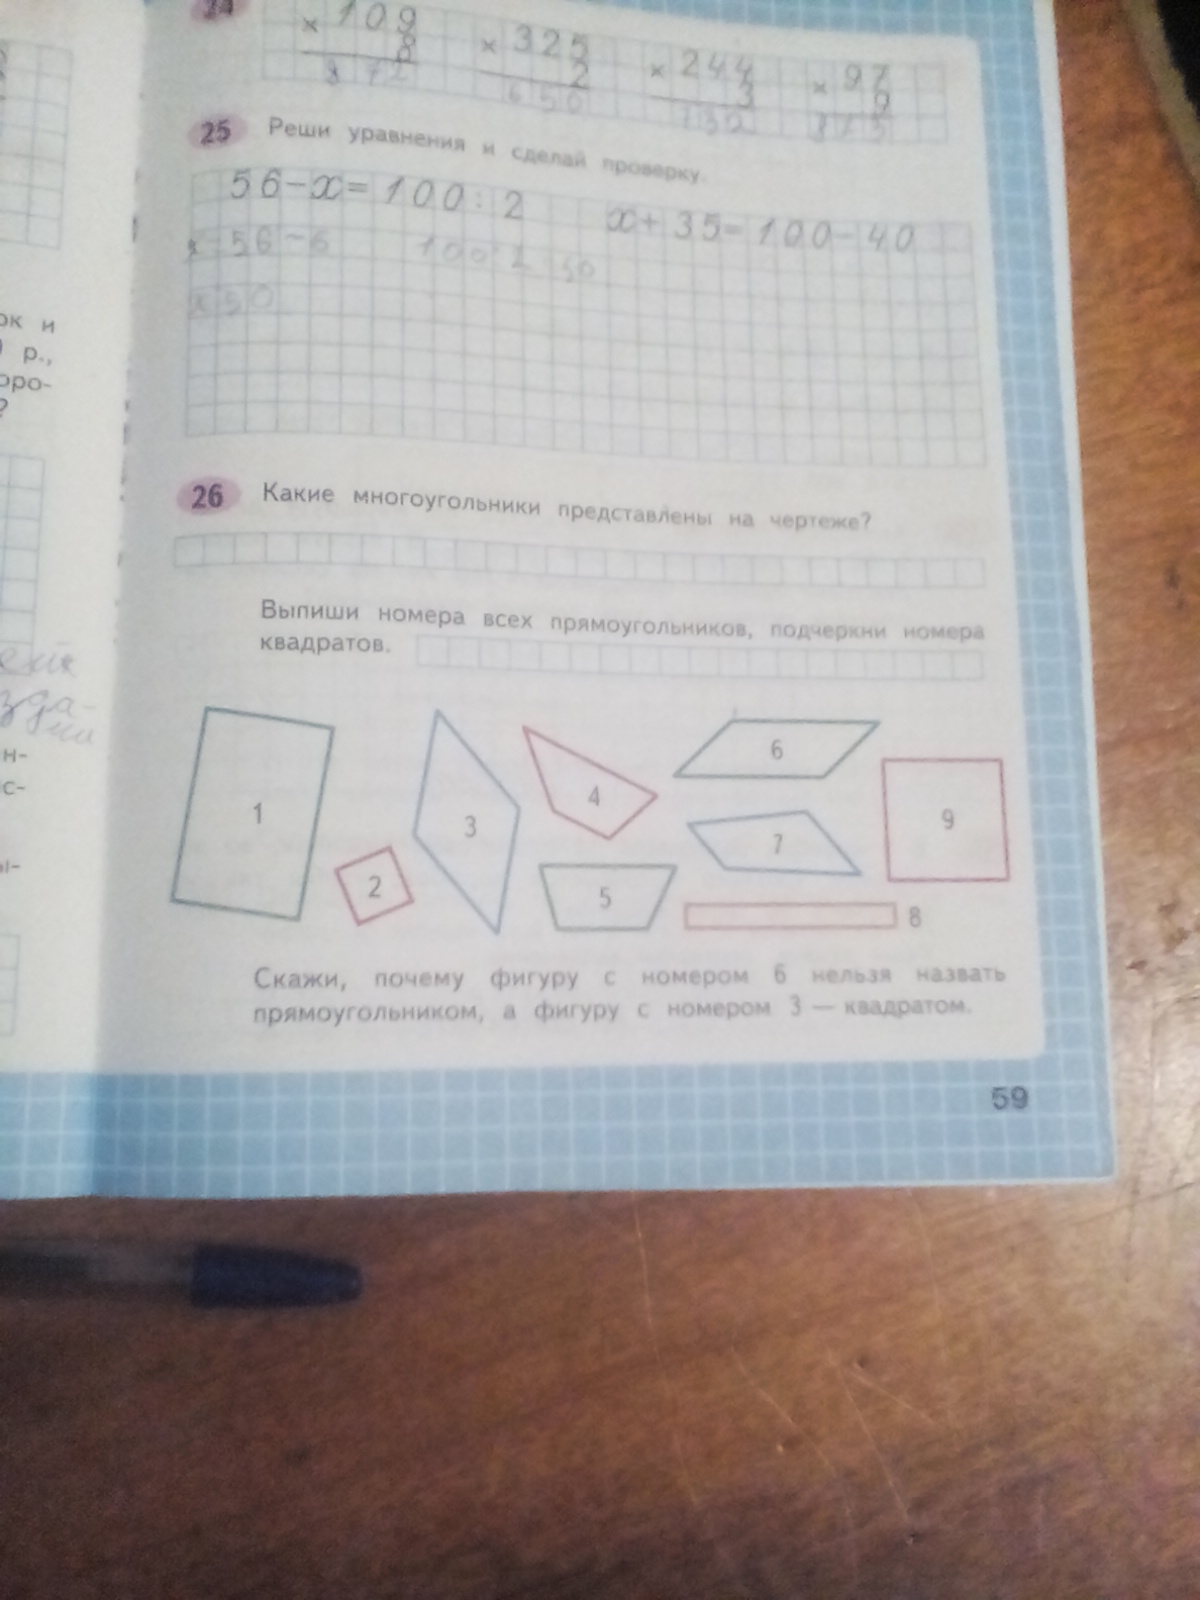 24
× 109 × 325 × 244 × 97
8 2 3 9
872 650 732
25 Реши уравнения и сделай проверку.
56-x=100:2 x+35=100-40
x 56-6 100:2 50
x 50
26 Какие многоугольники представлены на чертеже?
Выпиши номера всех прямоугольников, подчеркни номера
квадратов.
1 2 3 4 5 6 7 8 9
Скажи, почему фигуру с номером 6 нельзя назвать
прямоугольником, а фигуру с номером 3 — квадратом.
59
ок и
р.,
оро-
?
н-
с-